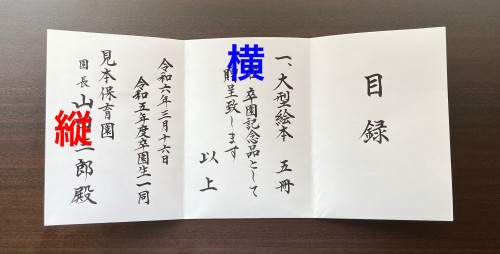 目録
一、大型絵本 五冊
卒園記念品として
贈呈致します
以上
令和六年三月十六日
令和五年度卒園生一同
見本保育園
園長 山 二郎 殿
横
縦